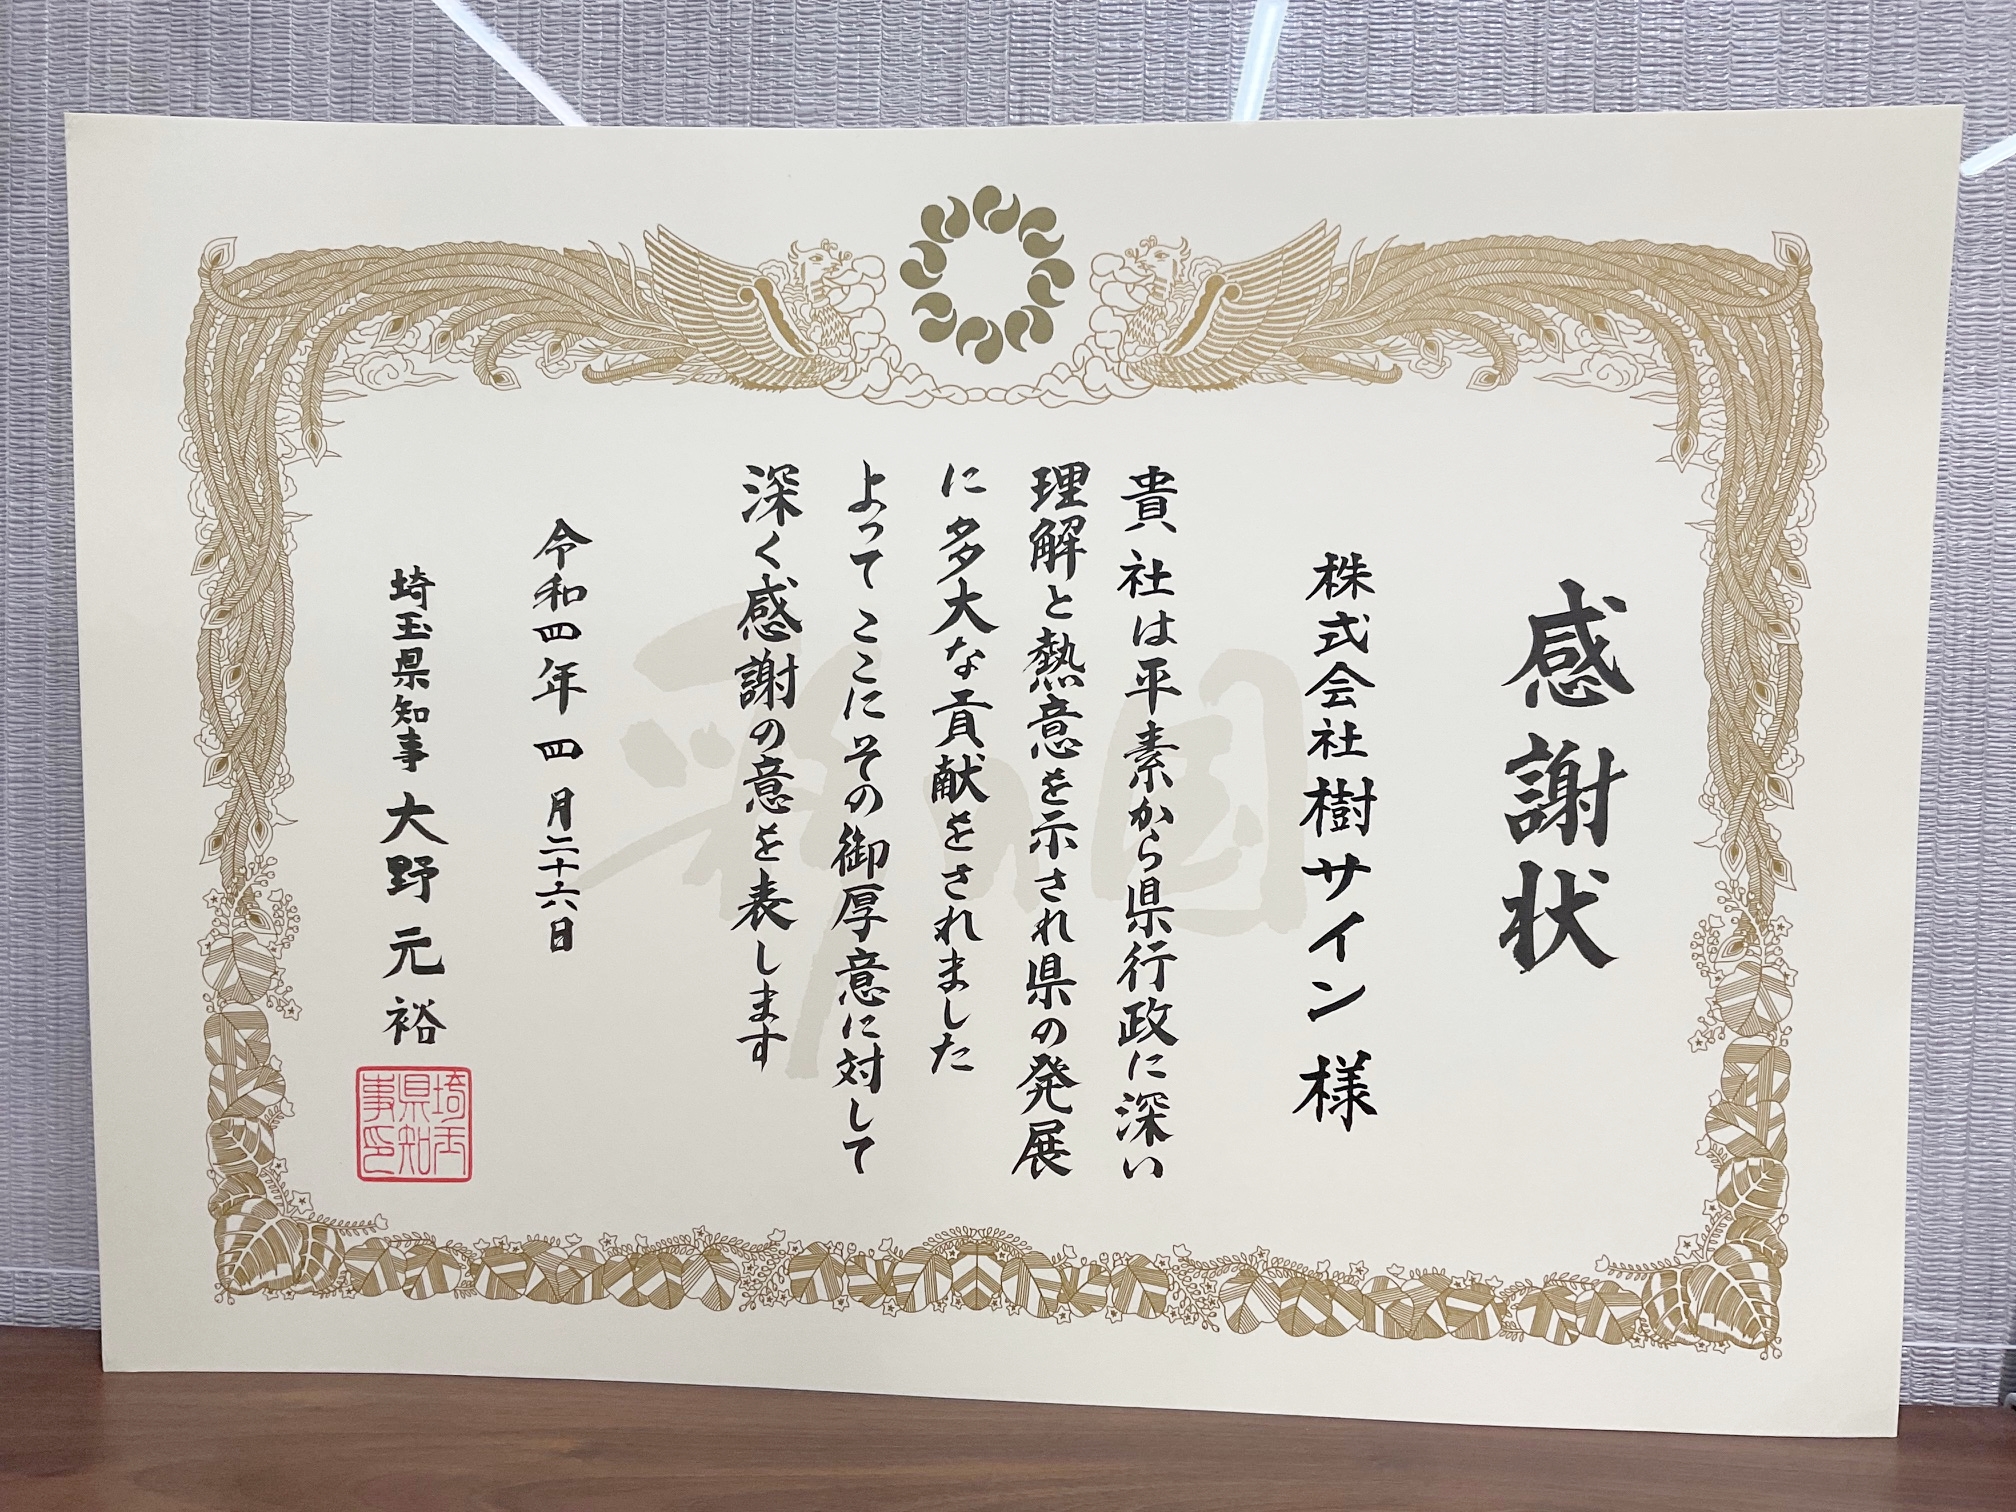 感謝状
株式会社樹サイン 様
貴社は平素から県行政に深い
理解と熱意を示され県の発展
に多大な貢献をされました
よってここにその御厚意に対して
深く感謝の意を表します
令和四年四月二十六日
埼玉県知事 大野元裕
埼玉県知事印
彩の国